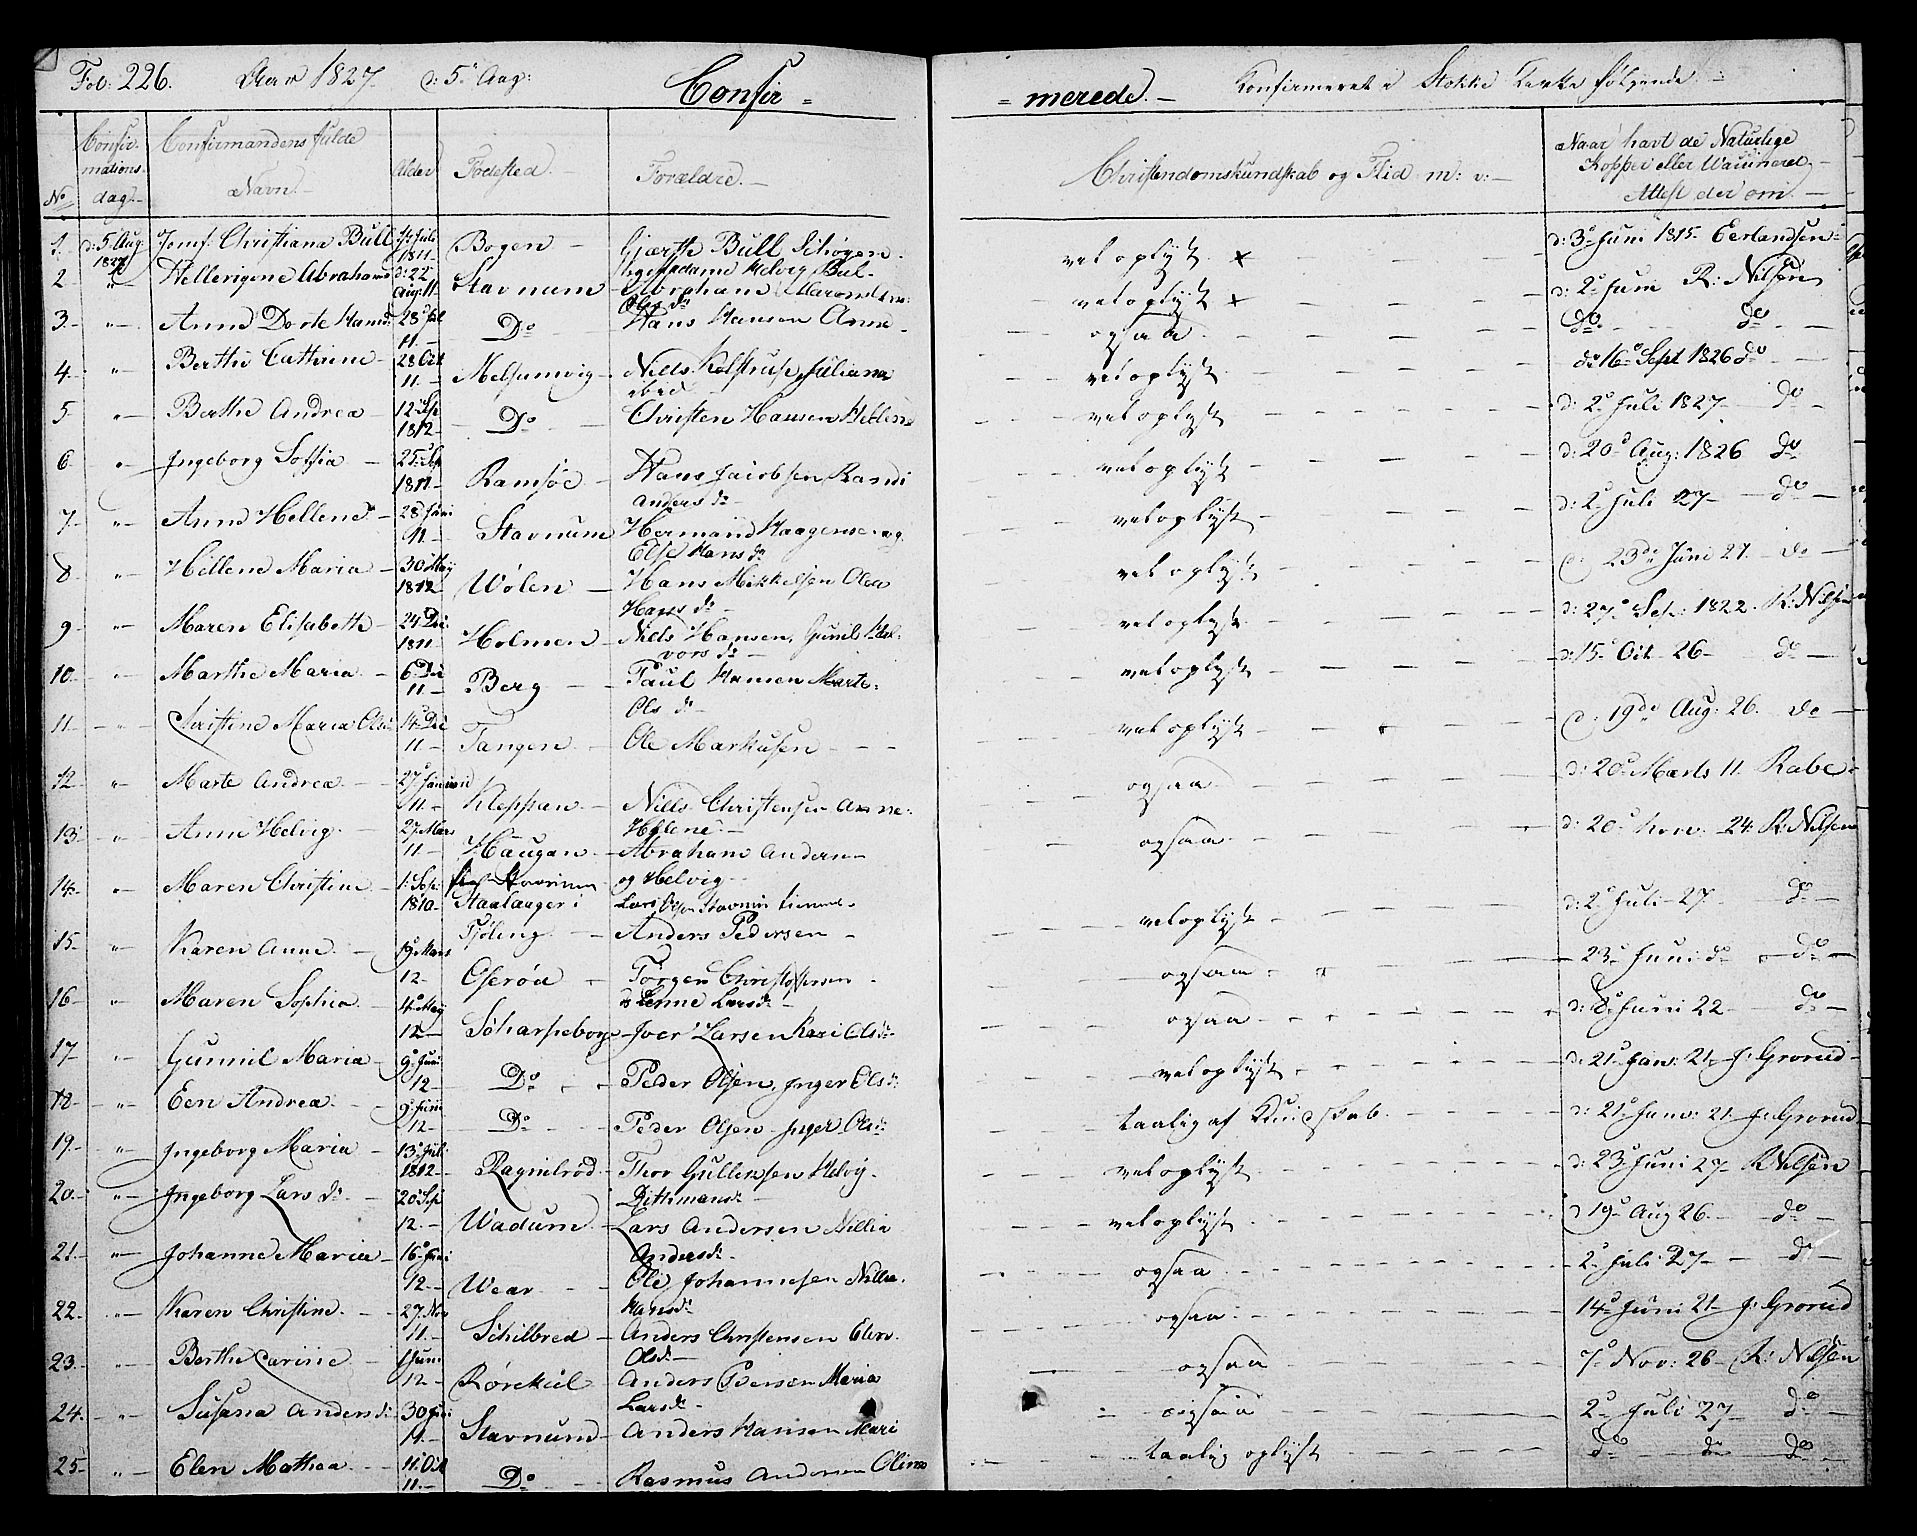 Fol: 226. Aar 1827 d: 5 Aug: Confir= =merede.- Konfirmeret i Stokke Kirke følgende
No Confir-mations-dag Confirmandens fulde Navn.- Alder Fødested.- Forældre.- Christendomskundskab og Flid m: v:- Naar havt de Naturlige Kopper eller Vacineret Attest der om.
1. d: 5 Aug 1827 Jomf. Christiana Bull 1811 Bogen - Gjærth Bull vel oplyst x d: 3 Juni 1815 Eerlandsen
2 " Hellevigene Abrahams d: 22 Aug 11 Stavnum - Abraham vel oplyst x d: 2 Juni R: Nilsen
3. " Anne Dorte Hansd 28 Jul 11.- Do Hans Hansen Anne Ols d: ogsaa do. do
4. " Berthe Cathrine - 28 Oct 11.- Melsumvig - Niels Kolstrup, Juliana ibid vel oplyst d: 16 Sept 1826 do
5 " Berthe Andrea - 12 Sp 1812 - Do Christen Hansen Hellene vel oplyst d: 2 Juli 1827 - Do
6. " Ingeborg Sofia - 25 Sep 1811 - Ramsøe - Hans Jacobsen Randi Anders d: vel oplyst d: 20 Aug: 1826 do
7 " Anne Hellene 28 Juni 11.- Stavnum Hermand Haagensen og Else Hans d: vel oplyst d: 2 Juli 27 - do -
8 " Hellene Maria - 30 May 1812 Wølen - Hans Mikkelsen Olea Hans d: vel oplyst d: 23de Juni 27. - do -
9 " Maren Elisabeth - 24 Dec 1811 - Holmen - Niels Hansen, Gunil Halvors d: vel oplyst d: 27 Set: 1822. R: Nilsen
10. " Marthe Maria. - 6 Dec 11 - Berg - Paul Hansen Marte Ols d: vel oplyst d: 15 Oct 26 - do -
11. " Christine Maria Olsd: 14 Dec 11 - Tangen - Ole Markusen - vel oplyst d: 19de Aug: 26. do -
12 " Marte Andrea. - 27 11.- Keppan - Niels Christensen Anne Helene.- ogsaa d: 20 Marts 11. Rabe
13. " Anne Helvig. - 27 Mars 11 - Haugan - Abraham Andersen og Helvig.- ogsaa d: 20 Nov. 24: R: Nilsen
14. " Maren Christine - 1: Sep: 1810. Staalaager i Fjøling - Anders Pedersen - vel oplyst d: 2 Juli - 27 - do
15. " Karen Anne - 19 Mars 12 - Oserød - Jørgen Christofersen Lenne Larsd: ogsaa 23 Juni do - do
16 " Maren Sophia - 14 May 12 - Scharpeborg - Joer Larsen Kari Olsd: ogsaa d: 8 Juni 22 - do
17 " Gunnil Maria - 9 Juni 12 - Do Peder Olsen, Inger Olsd: vel oplyst d: 21 Jan: 21 - J: Grorud
18 - " Een Andrea. - 9 Juni 12 - Do Peder Olsen - Inger Olsd: taalig af Kundskab. d: 21 Jan: 21 - J: Grorud
19. " Ingeborg Maria - 13 Juli 1812 - Ragnelrød - Thor Gullensen Helvig Dithmansd: vel oplyst d: 23 Juni 27 - R Nilsen
20. " Ingeborg Lars d: - 20 Sep 12.- Wadum - Lars Andersen Nillia Andersd: vel oplyst d: 19 Aug 26. do
21. " Johanne Maria - 16 Juni 12.- Wear - Ole Johannesen Nillia Hansd: ogsaa 2 Juli 27 - do
22. " Karen Christine. - 27 Nov 11.- Schilbred - Anders Christensen Elen Olsd: ogsaa 14 Juni 21 - J: Grorud
23. " Berthe Carine - Juni 12 - Rørekul Anders Iversen Maria Larsd: ogsaa 7 Nov: 26 - R: Nilsen
24. " Susana Andersd: 30 Juni 11.- Stavnum - Anders Hansen Mari ogsaa 2 Juli 27 - do -
25 " Elen Mathea - 11 Oct 11.- Do Rasmus Andersen Oline taalig oplyst do do do